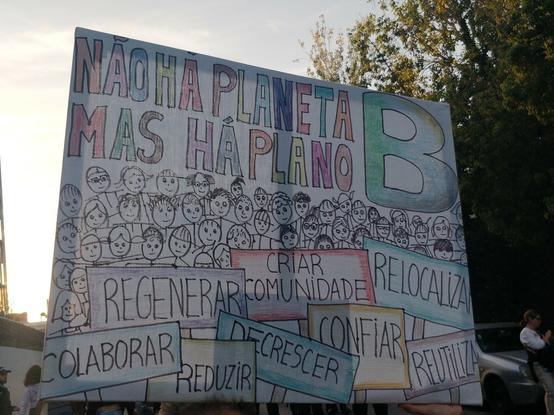 NÃO HÁ PLANETA B
MAS HÁ PLANO
CRIAR
COMUNIDADE
RELOCALIZA
REGENERAR
CONFIAR
COLABORAR
DECRESCER
REUTILIZA
REDUZIR